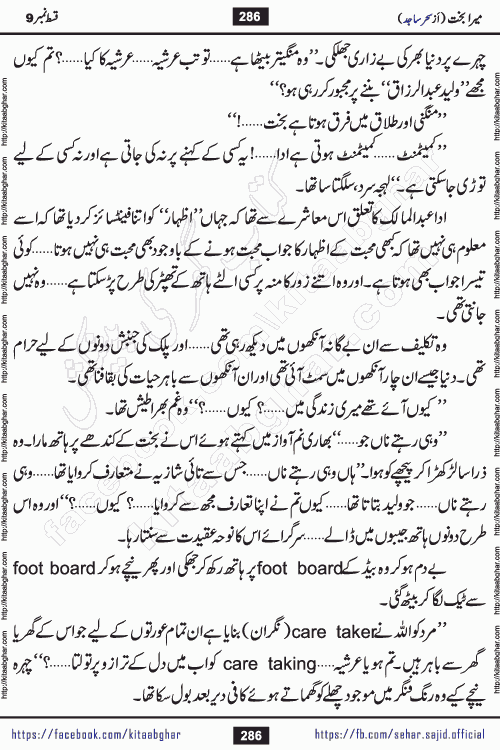 قسط نمبر 9
286
میرا بخت (از سحر ساجد)
چہرے پر دنیا بھر کی بے زاری جھلکی۔ ’’وہ منگیتر بیٹھا ہے......تو تب عرشیہ......عرشیہ کا کیا......؟تم کیوں
مجھے ’’ولید عبدالرزاق‘‘ بننے پر مجبور کر رہی ہو؟‘‘
’’منگنی اور طلاق میں فرق ہوتا ہے بخت......!‘‘
’’کمیٹمنٹ......کمیٹمنٹ ہوتی ہے ادا......! یہ کسی کے کہنے پر نہ کی جاتی ہے اور نہ کسی کے لیے
توڑی جا سکتی ہے۔‘‘ لہجہ سرد، سلگتا سا تھا۔
ادا عبدالمالک کا تعلق اس معاشرے سے تھا کہ جہاں ’’اظہار‘‘ کو اتنا فینٹسائز کر دیا تھا کہ اسے
معلوم ہی نہیں تھا کہ کبھی محبت کے اظہار کا جواب محبت ہونے کے باوجود بھی محبت ہی نہیں ہوتا......کوئی
تیسرا جواب بھی ہوتا ہے۔ اور وہ اتنے زور کا منہ پر کسی الٹے ہاتھ کے تھپڑ کی طرح پڑ سکتا ہے......وہ نہیں
جانتی تھی۔
وہ تکلیف سے ان بے گانہ آنکھوں میں دیکھ رہی تھی......اور پلک کی جنبش دونوں کے لیے حرام
تھی۔ دنیا جیسے ان چار آنکھوں میں سمٹ آئی تھی اور ان آنکھوں سے باہر حیات کی بقا فنا تھی۔
’’کیوں آئے تھے میری زندگی میں......؟ کیوں......؟‘‘ وہ غم بھرا طیش تھا۔
’’وہی رہتے ناں جو......‘‘ بھاری نم آواز میں کہتے ہوئے اس نے بخت کے کندھے پر ہاتھ مارا۔ وہ
ذرا سا لڑکھڑا کر پیچھے کو ہوا۔ ’’ہاں وہی رہتے ناں......جس سے تائی شازیہ نے متعارف کروایا تھا......وہی
رہتے ناں......جو ولید بتاتا تھا......کیوں تم نے اپنا تعارف مجھ سے کروایا......؟ کیوں......؟‘‘ اور وہ اس
طرح دونوں ہاتھ جیبوں میں ڈالے......سر گرائے اس کا نوحہ عقیدت سے سنتا رہا۔
بے دم ہو کر وہ بیڈ کے foot board پر ہاتھ رکھ کر جھکی اور پھر نیچے ہو کر foot board
سے ٹیک لگا کر بیٹھ گئی۔
’’مرد کو اللہ نے care taker (نگران) بنایا ہے ان تمام عورتوں کے لیے جو اس کے گھر یا
گھر سے باہر ہیں۔ تم ہو یا عرشیہ......care taking کو اب میں دل کے ترازو پر تولتا......؟‘‘ چہرہ
نیچے کیے وہ رنگ فنگر میں موجود چھلے کو گھماتے ہوئے کافی دیر بعد بول سکا تھا۔
https://facebook.com/kitaabghar
286
https://fb.com/sahar.sajid.official
http://kitaabghar.com